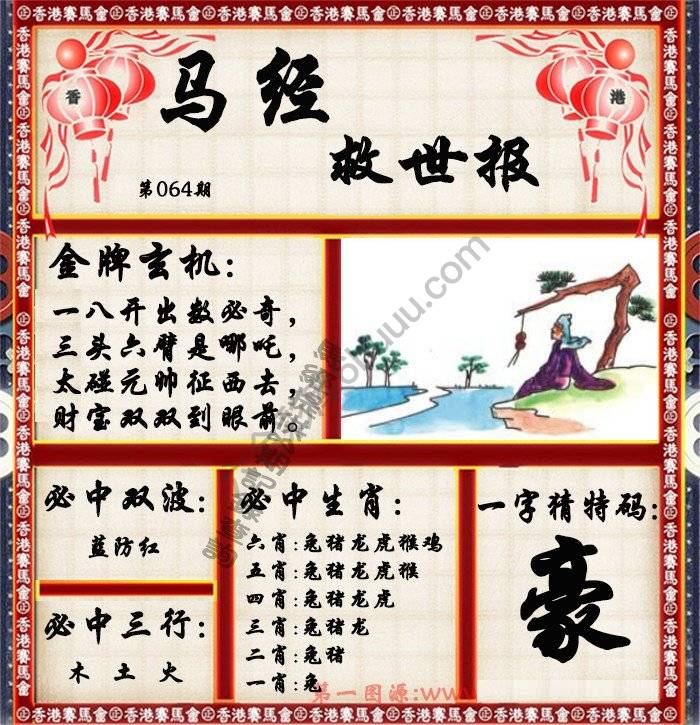 香港賽馬會
香
港
马经
救世报
第064期
金牌玄机:
一八开出数必奇,
三头六臂是哪吒,
太碰元帅征西去,
财宝双双到眼前。
必中双波:
蓝防红
必中三行:
木 土 火
必中生肖:
六肖:兔猪龙虎猴鸡
五肖:兔猪龙虎猴
四肖:兔猪龙虎
三肖:兔猪龙
二肖:兔猪
一肖:兔
一字猜特码:
豪
第一图源:www